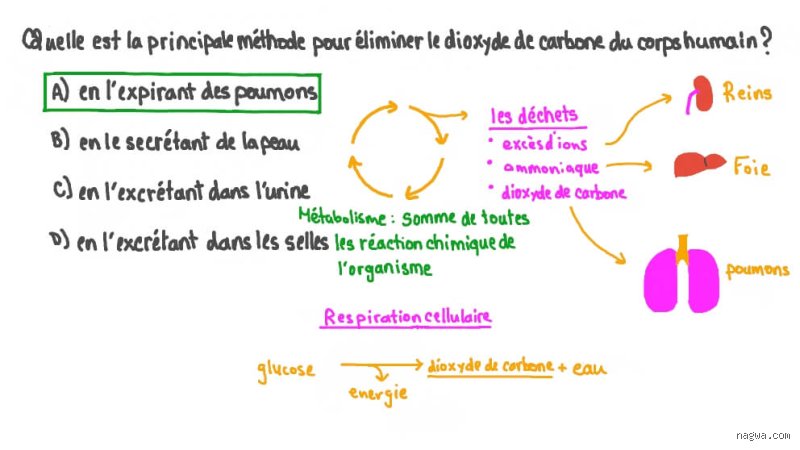 Quelle est la principale méthode pour éliminer le dioxyde de carbone du corps humain ?
A) en l'expirant des poumons
B) en le secrétant de la peau
C) en l'excrétant dans l'urine
D) en l'excrétant dans les selles
les déchets
• excès d'ions
• ammoniaque
• dioxyde de carbone
Reins
Foie
poumons
Métabolisme : somme de toutes
les réaction chimique de
l'organisme
Respiration cellulaire
glucose
dioxyde de carbone + eau
energie
nagwa.com